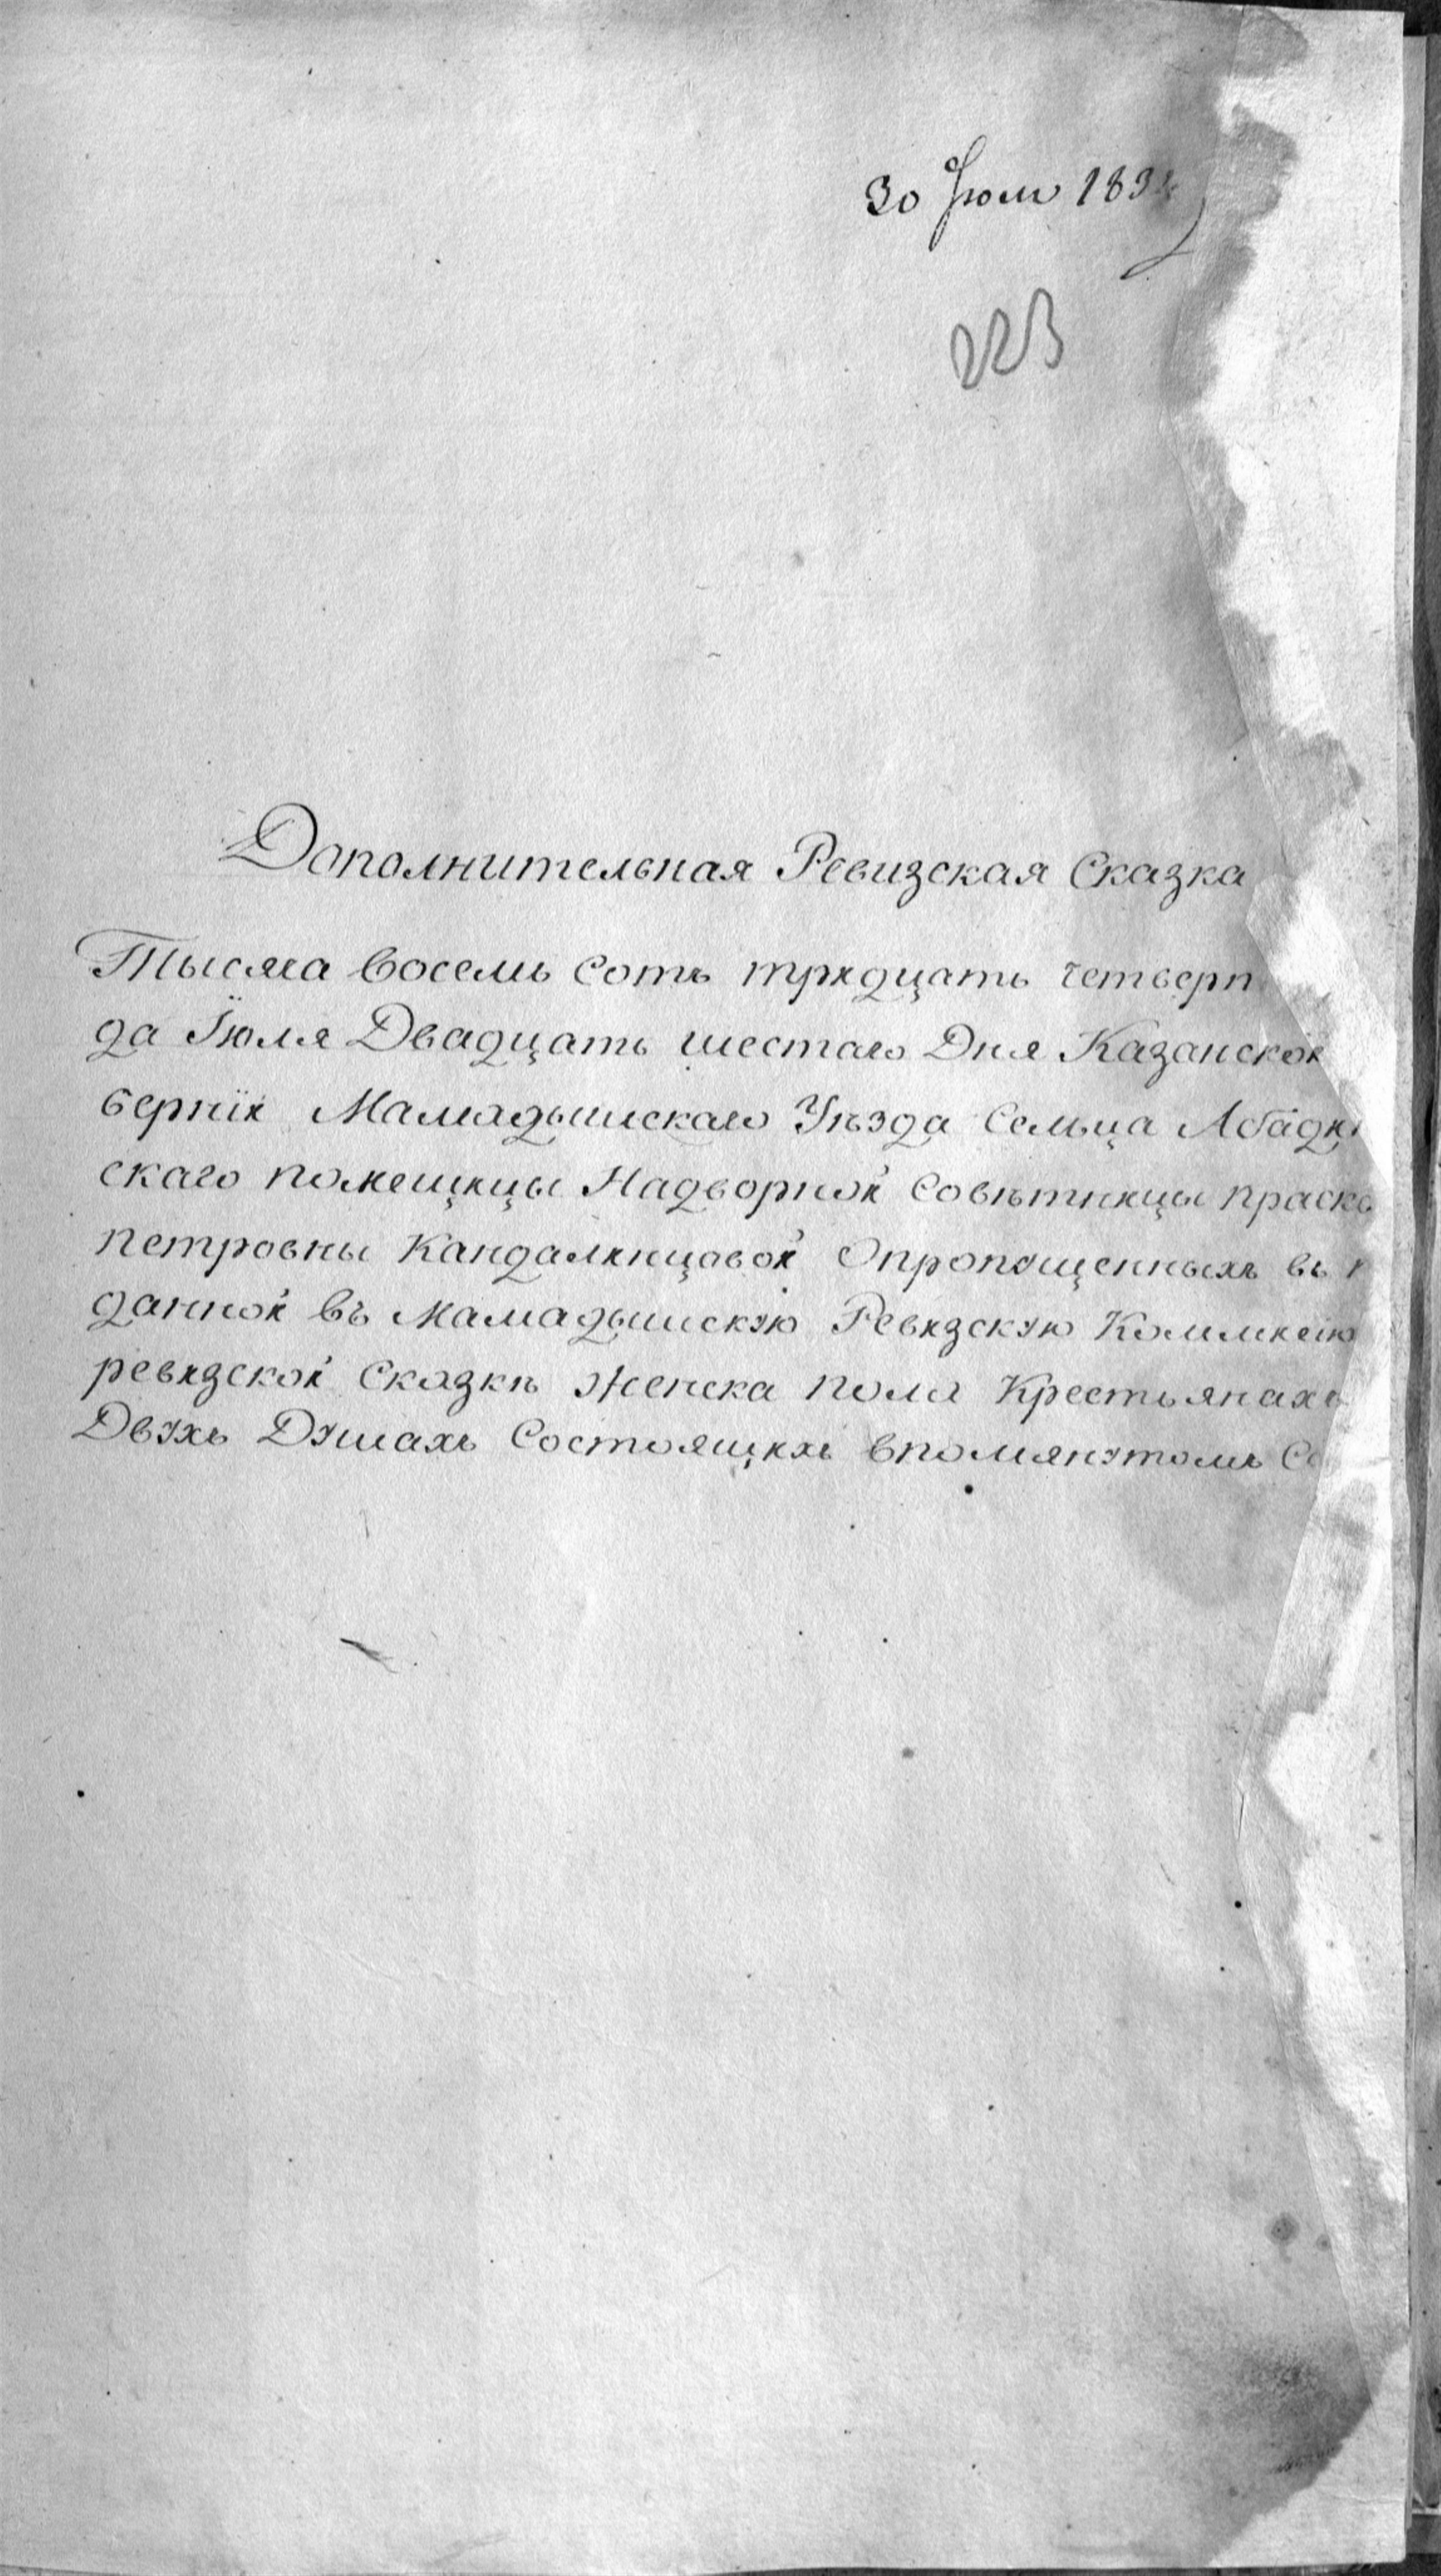 30 Июля 1834
223
Дополнительная Ревизская Сказка
Тысяча восемь сотъ тридцать четверт
да Іюля Двадцать шестаго Дня Казанской
берніи Мамадышскаго Уѣзда Сельца
скаго помещицы Надворной Совѣтницы праско
петровны Кандалинцовой Опропущенныхъ въ
данной въ Мамадышскую Ревизскую Коммисію
ревизской Сказкѣ женска пола Крестьянахъ
Двухъ Душахъ Состоящихъ впомянутомъ Се